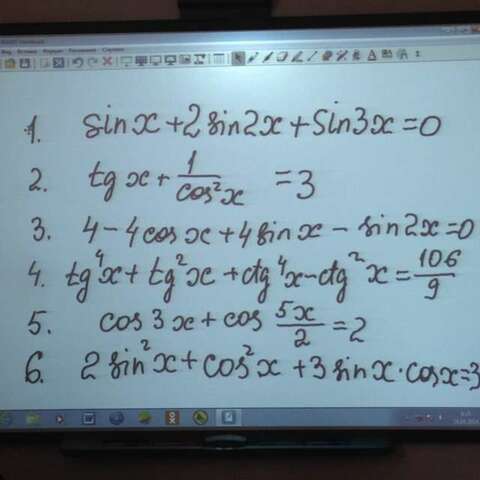 1. sinx+2sin2x+Sin3x=0
2. tgx+1/cos²x =3
3. 4-4cosx+4sinx-sin2x=0
4. tg⁴x+tg²x+ctg⁴x-ctg²x=106/9
5. cos3x+cos 5x/2=2
6. 2sin²x+cos²x+3sinx·cosx=3